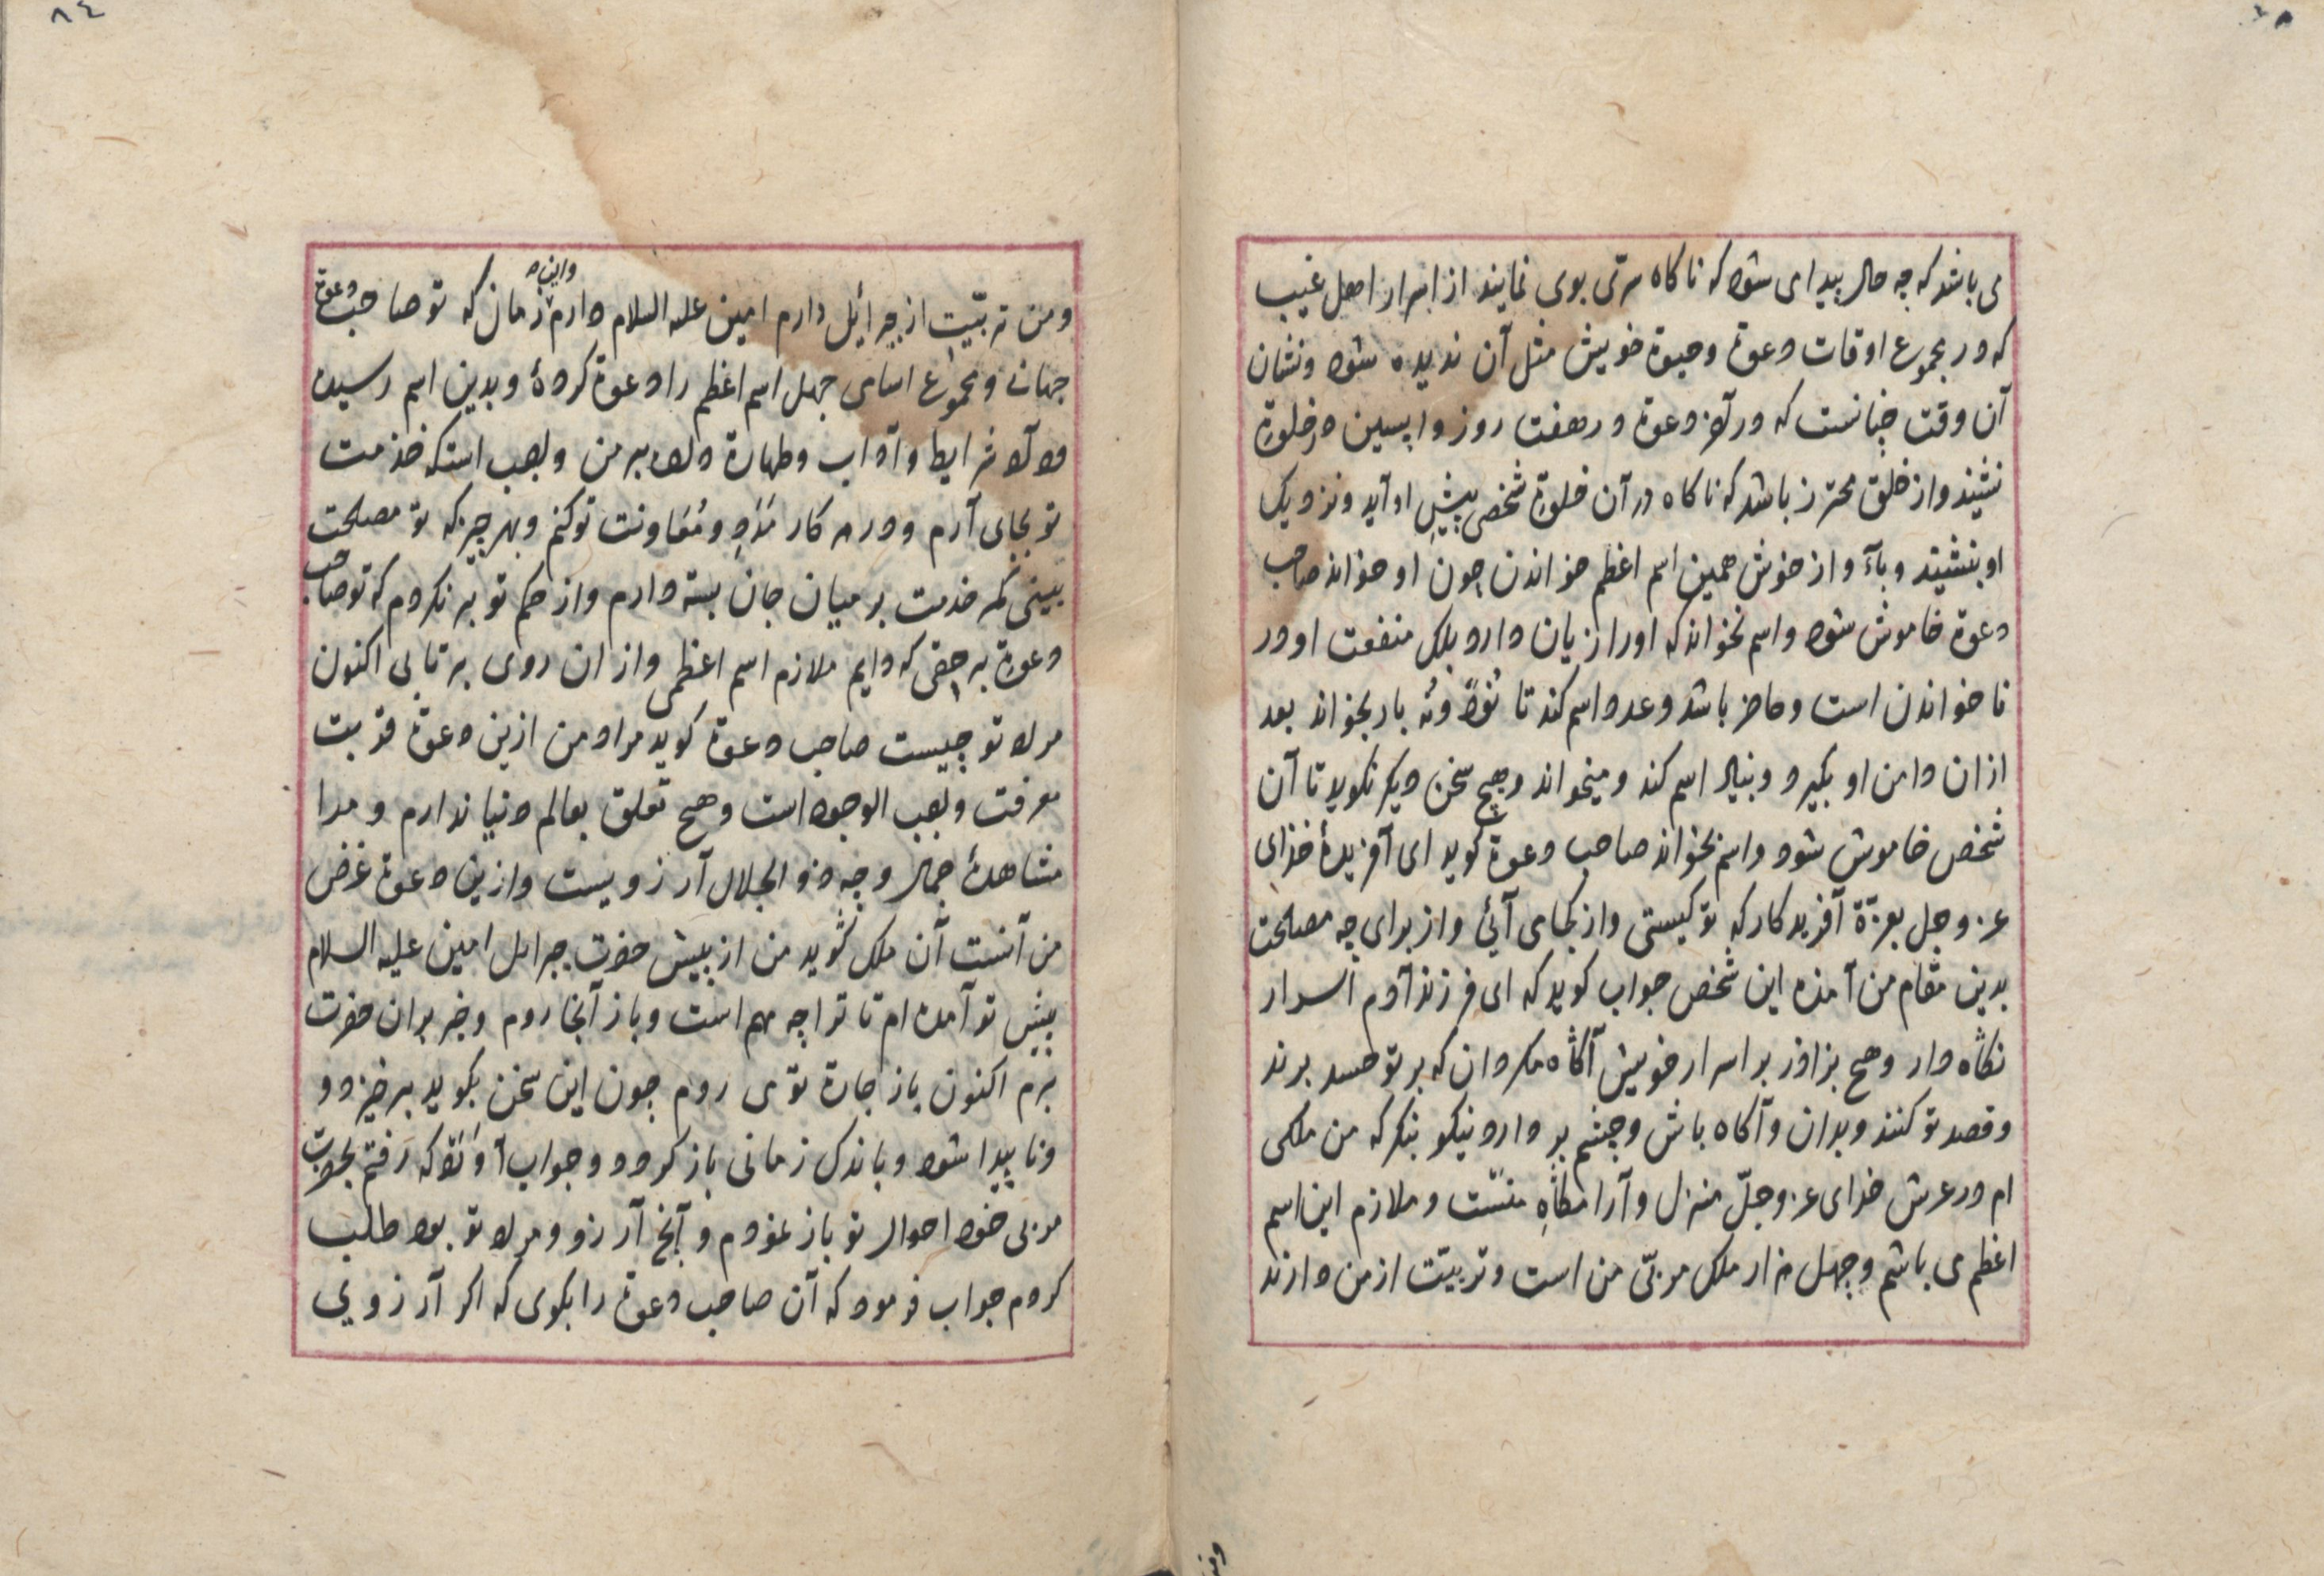 می باشد که چه حال پیدا می شود که ناکاه سرّی بوی نمایند از اسرار اهل غیب
که در مجموع اوقات دعوة و حیوة خویش مثل آن ندیده شود و نشان
آن وقت چنانست که در آخر دعوة در هفت روز واپسین در خلوة
نشیند و از خلق محترز باشد که ناکاه در آن خلوة شخصی پیش او آید و نزدیک
او بنشیند و بآواز خوش همین اسم اعظم خواندن چون او خواند صاحب
دعوة خاموش شود و اسم نخواند که او را زیان دارد بلک منفعت او در
نا خواندن است و حاضر باشد و عدد اسم کند تا نود و نه بار بخواند بعد
از ان دامن او بکیرد و بنیاد اسم کند و میخواند و هیچ سخن دیکر نکوید تا آن
شخص خاموش شود و اسم نخواند صاحب دعوة کوید ای آفریدۀ خذای
عز و جل بعزّة آفریدکار که تو کیستی و از کجای آیی و از برای چه مصلحت
بدین مقام من آمذه این شخص جواب کوید که ای فرزند آدم اسرار
نکاه دار و هیچ بر اسرار خویش آکاه مکردان که بر تو حسد برند
و قصد تو کنند و بدان و آکاه باش و چشم بر دار و نیکو بنکر که من ملکی
ام در عرش خدای عز و جلّ منزل و آرامکاهِ منست و ملازم این اسم
اعظم می باشم و چهل هزار ملک مربّی من است و تربیّت از من دارند
٨٤
و من تربیّت از جبرائیل دارم امین علیه السلام دارم زمان که تو صاحب دعوة
و این
جهان و مجموع اسامی چهل اسم اعظم را دعوة کردۀ و بدین اسم رسیده
شرایط و آداب و طهارة بر من واجب است که خذمت
تو بجای آرم و در هر کار مَدَدِ و مُعَاونت تو کنم و بهر چیز که تو مصلحت
بینی کمر خذمت بر میان جان بسته دارم و از حکم تو بر نکردم که تو صاحب
دعوة بر حقی که دایم ملازم اسم اعظمی و از ان روی بر تابی اکنون
مراد تو چیست صاحب دعوة کوید مراد من ازین دعوة قربت
معرفت واجب الوجود است و هیچ تعلق بعالم دنیا ندارم و مرا
مشاهدۀ جمال وجه ذو الجلال آرزویست و ازین دعوة غرض
من آنست آن ملک کوید من از پیش حضرت جبرایل امین علیه السلام
پیش تو آمده ام تا ترا چه مهم است و باز آنجا روم و خبر بدان حضرت
برم اکنون باز اجازة تو می روم چون این سخن بکوید برخیزد و
و ناپیدا شود و باندک زمانی باز کردد و جواب آورد که رفتم بحضرت
مربی خود احوال تو باز نمودم و آنچ آرزو و مراد تو بود طلب
کردم جواب فرمود که آن صاحب دعوة را بکوی که اکر آرزوی